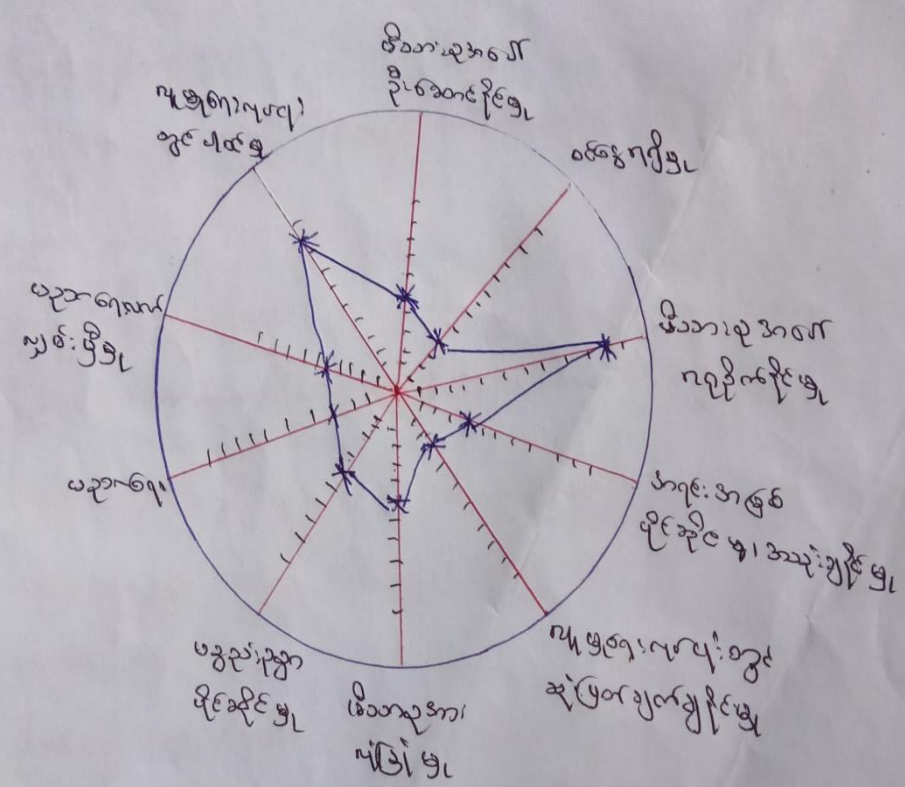 မိသားစုအပေါ်
ဦးဆောင်နိုင်မှု
ဝင်ငွေရရှိမှု
မိသားစုအပေါ်
အရင်းအမြစ်
ပိုင်ဆိုင်မှု၊ အသုံးချနိုင်မှု
လူမှုရေးလုပ်ငန်းတွင်
ဆုံးဖြတ်ချက်ချနိုင်မှု
မိသားစုအား
လုံခြုံမှု
ပစ္စည်းဥစ္စာ
ပိုင်ဆိုင်မှု
ပညာရေး
ပညာရေး
လူမှုရေးလုပ်ငန်း
တွင် ပါဝင်မှု